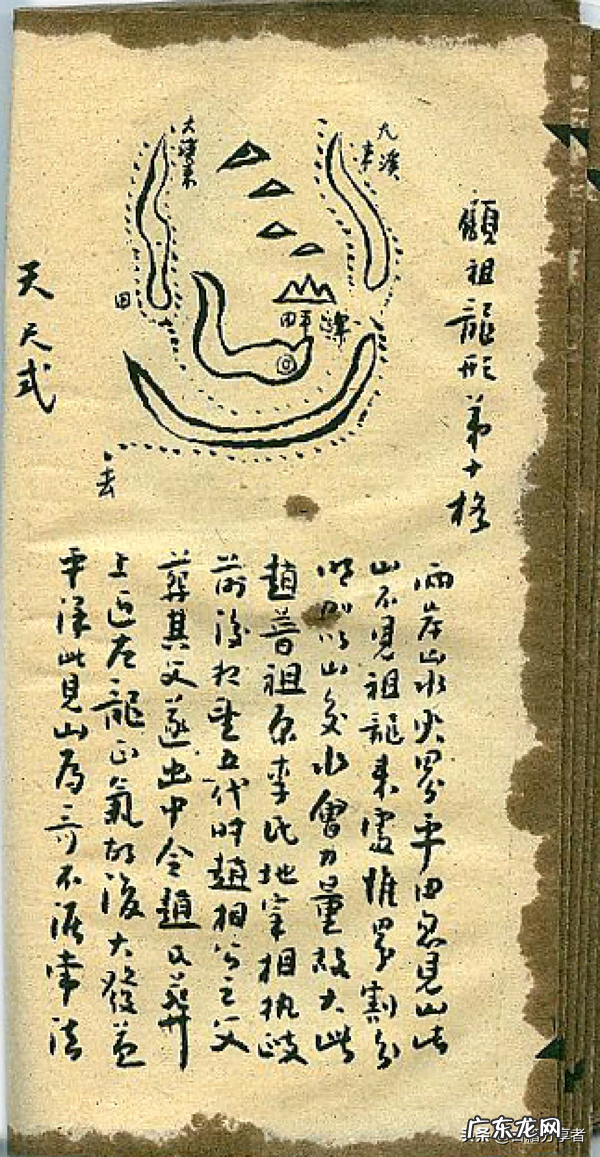 顧祖龍形第十格
九溪來
大溪來
田平
田
去
天尺式
兩岸山水大界平田忽見山此
山不見祖龍來處惟界割分
明加以山交水會力量故大此
趙普祖原李氏地宰相執政
前後相望五代時趙相公之父
葬其父遂出中令趙氏葬
上迫左龍正氣故後大發蓋
平洋此見山為奇不泥常法
广东龙网